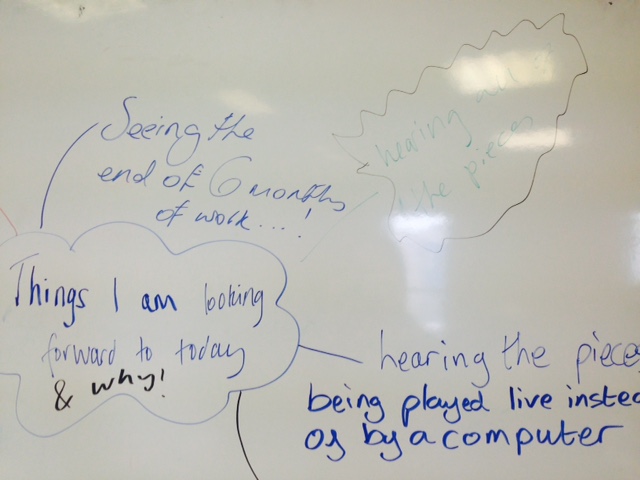 Seeing the
end of 6 months
of work....!
hearing all
the pieces
Things I am looking
forward to today
& why!
hearing the pieces
being played live instea
of by a computer